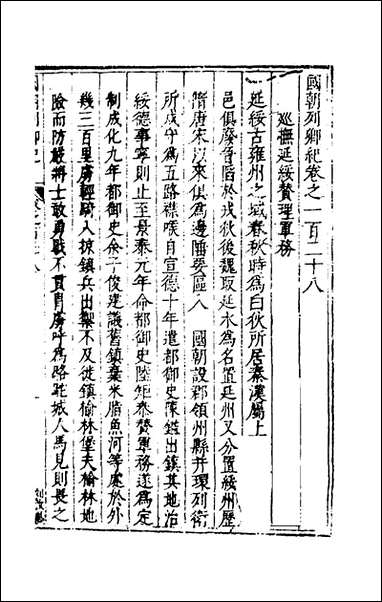 國朝列卿紀卷之一百二十八
巡撫延綏贊理軍務
延綏古雍州之域春秋時為白狄所居秦漢屬上
邑俱廢晉陷於戎狄後魏取延水為名置延州又分置綏州歷
隋唐宋以來俱為邊陲要區入　國朝設郡領州縣并環列衛
所戍守為五路襟喉自宣德十年遣都御史陳鎰出鎮其地治
綏德事寧則止至景泰元年命都御史陸矩泰贊軍務遂為定
制成化九年都御史余子俊建議舊鎮棄米脂魚河等處於外
幾三百里虜輕騎入掠鎮兵出禦不及徙鎮榆林堡夫榆林地
險而防嚴將士敢勇戰不貫胄虜呼為駱駝城人馬見則畏之